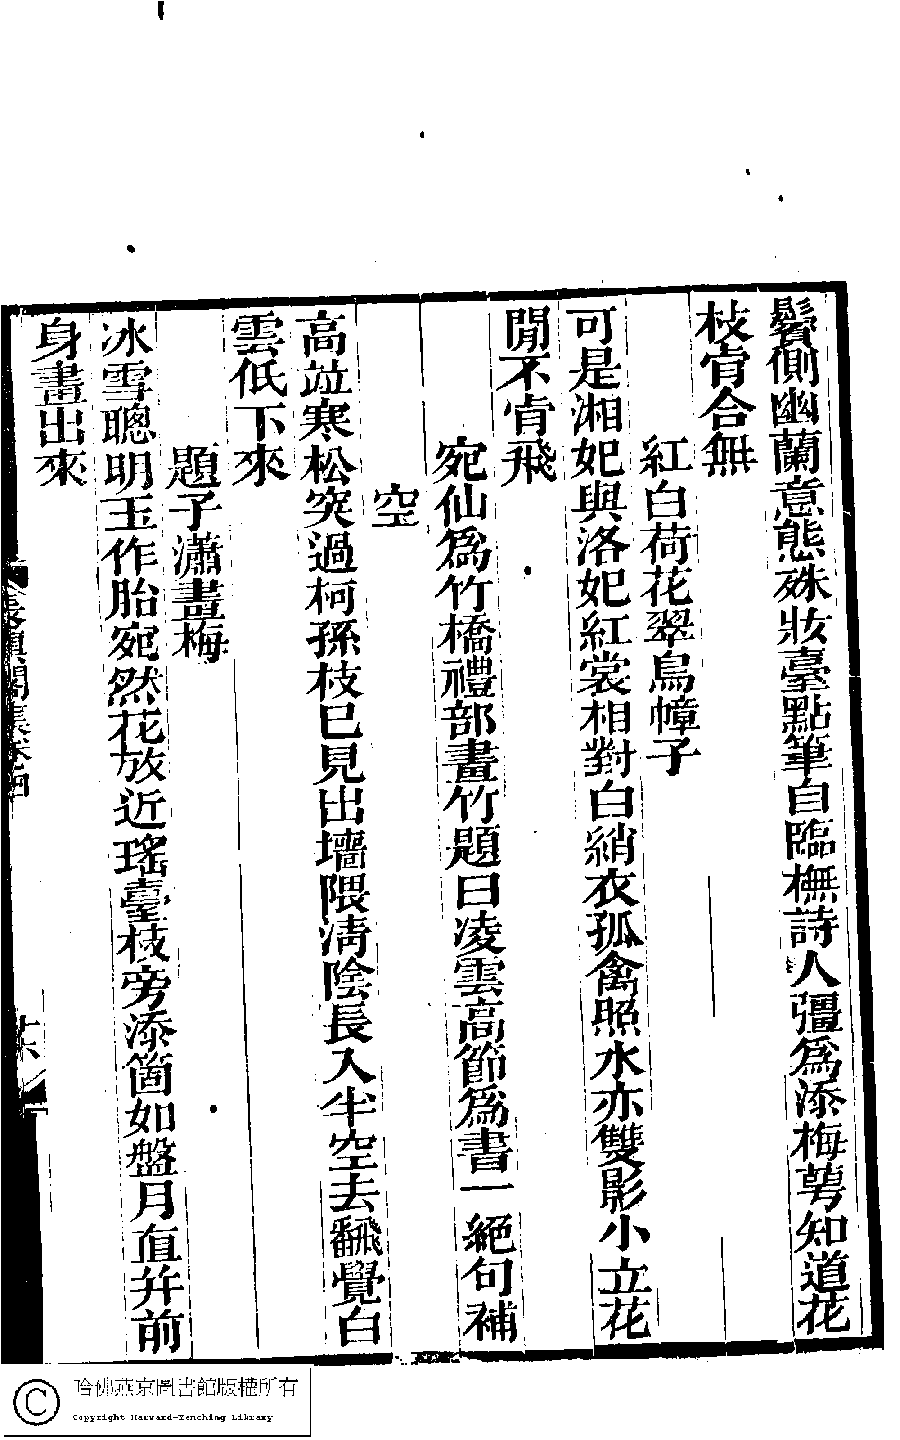 鬢側幽蘭意態殊妝臺點筆自臨橅詩人彊爲添梅萼知道花
枝肯合無
紅白荷花翠鳥幛子
可是湘妃與洛妃紅裳相對白綃衣孤禽照水亦雙影小立花
閒不肯飛
宛仙爲竹橋禮部畫竹題曰凌雲高節爲書一絕句補
空
高竝寒松突過柯孫枝已見出墻隈淸陰長入半空去翻覺白
雲低下來
題子瀟畫梅
冰雪聰明玉作胎宛然花放近瑤臺枝旁添箇如盤月直幷前
身畫出來
長眞閣集卷四
哈佛燕京圖書館版權所有
Copyright Harvard-Yenching Library